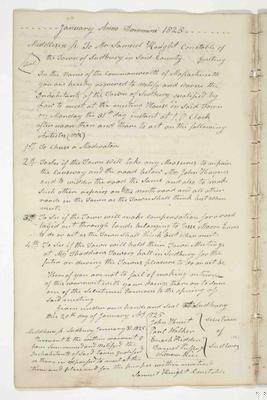 January Anno Domini 1825
Middlesex ss. To Mr Samuel Knight Constable of
the Town of Sudbury in said County Greeting
In the Name of the Commonwealth of Massachusetts
you are hereby required to notify and warn the
Inhabitants of the Town of Sudbury qualified by
law to meet at the meeting House in said Town
on Monday the 31st day instant at 1 O Clock
afternoon then and there to act on the following
Articles (viz)
1st To Chuse a Moderator
2d To See if the Town will take any Measures to repair
the Causway and the road below Mr John
and to widen the road the Same and also to make
Such other repairs on the road and all other
roads in the Town as the Town Shall think best when
met
3d To See if the Town will make compensation for a road
laid out through lands belonging to
to do or act as the Town Shall think best when met
4th To See if the Town will hold their Town Meetings
at Mr Thaddeus Hall in Sudbury for the
future or during the Towns pleasure to do or act
Hereof you are not to fail of making return
of this warrant with your doings thereon to some
one of the Selectmen previous to the opening of
Said meeting
Given under our hands and Seal at Sudbury
the 20th day of January AD 1825
John Hunt
Selectmen
of
Sudbury
Middlesex ss. Sudbury January 31 1825
Pursuant to the within warrant I
have Summoned and Notified the
Inhabitants of Said Town qualified
as therein expressed to meet at the
time and place and for the purpose within mentioned
Samuel Knight Constable